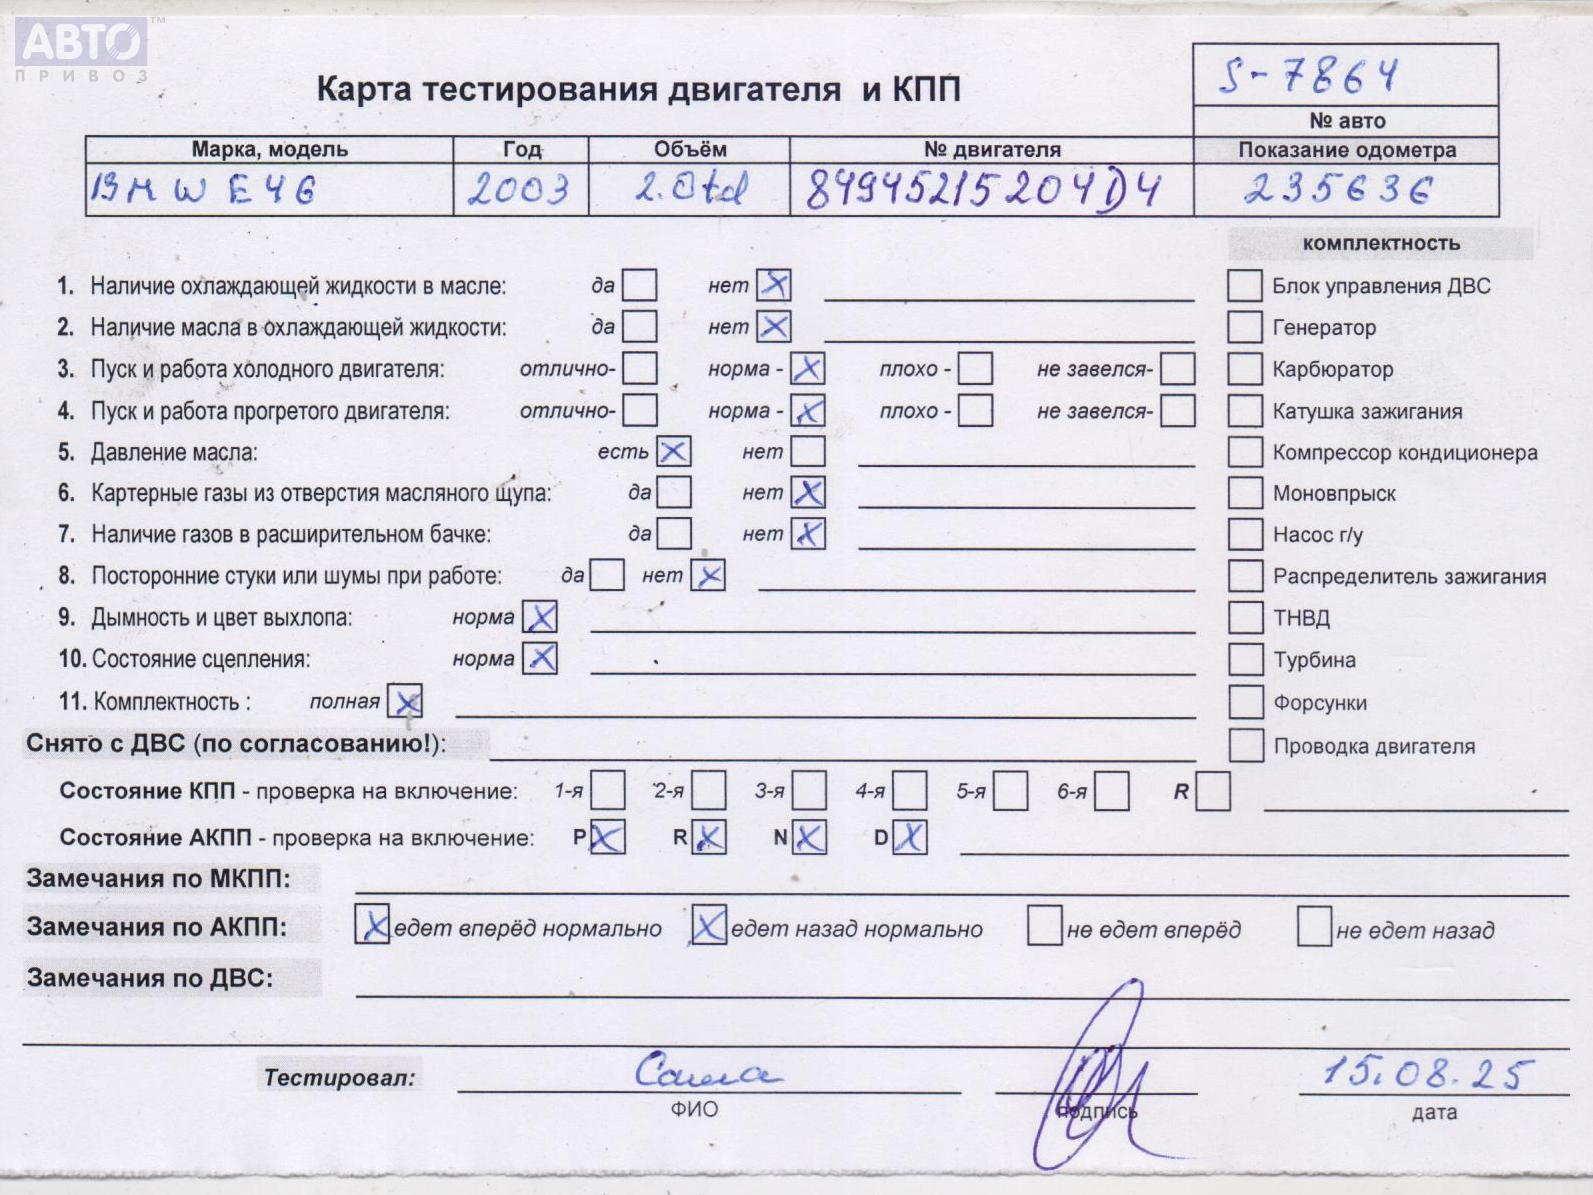 АВТО™
ПРИВОЗ
Карта тестирования двигателя и КПП
S-7864
№ авто
Марка, модель Год Объём № двигателя Показание одометра
BMW E46 2003 2.0td 84945215204D4 235636
комплектность
1. Наличие охлаждающей жидкости в масле: да нет X Блок управления ДВС
2. Наличие масла в охлаждающей жидкости: да нет X Генератор
3. Пуск и работа холодного двигателя: отлично- норма - X плохо - не завелся- Карбюратор
4. Пуск и работа прогретого двигателя: отлично- норма - X плохо - не завелся- Катушка зажигания
5. Давление масла: есть X нет Компрессор кондиционера
6. Картерные газы из отверстия масляного щупа: да нет X Моновпрыск
7. Наличие газов в расширительном бачке: да нет X Насос г/у
8. Посторонние стуки или шумы при работе: да нет X Распределитель зажигания
9. Дымность и цвет выхлопа: норма X ТНВД
10. Состояние сцепления: норма X Турбина
11. Комплектность : полная X Форсунки
Снято с ДВС (по согласованию!): Проводка двигателя
Состояние КПП - проверка на включение: 1-я 2-я 3-я 4-я 5-я 6-я R
Состояние АКПП - проверка на включение: P X R X N X D X
Замечания по МКПП:
Замечания по АКПП: X едет вперёд нормально X едет назад нормально не едет вперёд не едет назад
Замечания по ДВС:
Тестировал: Саша 15.08.25
ФИО подпись дата